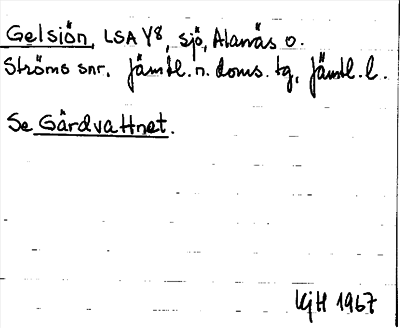 Gelsjön, LSA Y8, sjö, Alanäs o.
Ströms snr. Jämtl. n. doms. tg, Jämtl. l.
Se Gärdvattnet.
KjH 1967